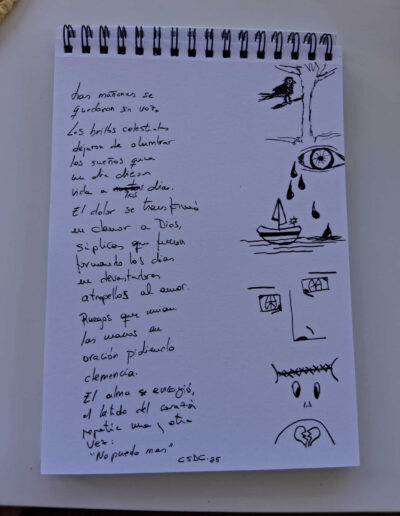 Las mañanas se
quedaron sin voz.
Los brillos celestiales
dejaron de alumbrar
los sueños que
un día dieron
vida a tris días.
El dolor se transformó
en clamor a Dios,
súplicas que fueron
formando los días
en devastadores
atropellos al amor.
Ruegos que unían
las manos en
oración pidiendo
clemencia.
El alma se encogió,
el latido del corazón
repetía una y otra
vez:
"No puedo mas"
CSDC-25